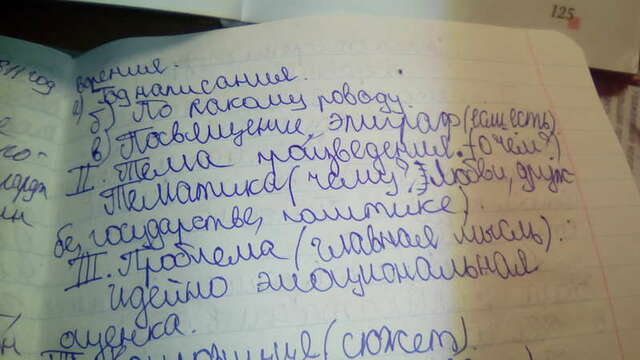 125
вления.
а) Год написания.
б) По какому поводу.
в) Посвящение, эпиграф (если есть).
II. Тема произведения. (О чём?)
Тематика (чему?, любви, друж
бе, государстве, политике).
III. Проблема (главная мысль).
идейно эмоциональная
оценка.
(сюжет).
год